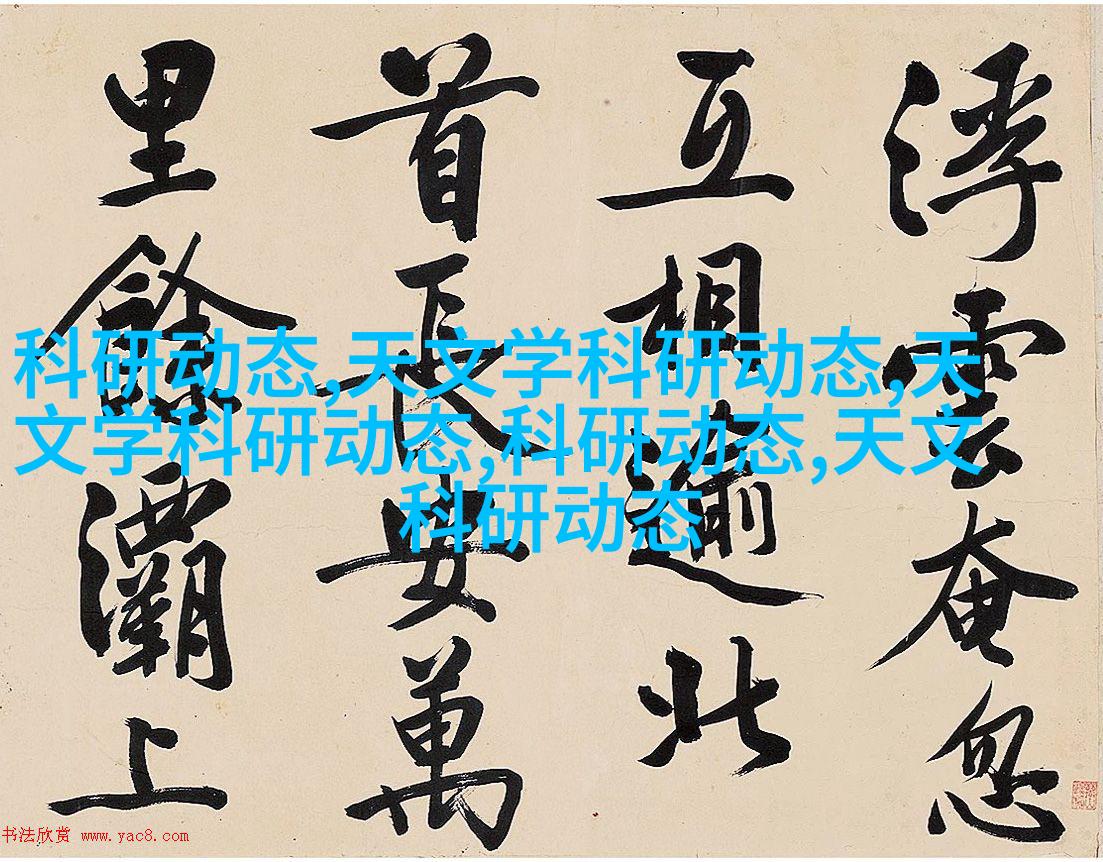 浮雲奄忽
互相逾北
首長安萬
里餘灞上
科研动态,天文学科研动态,天
文学科研动态,科研动态,天文
科研动态
书法欣赏 www.yac8.com